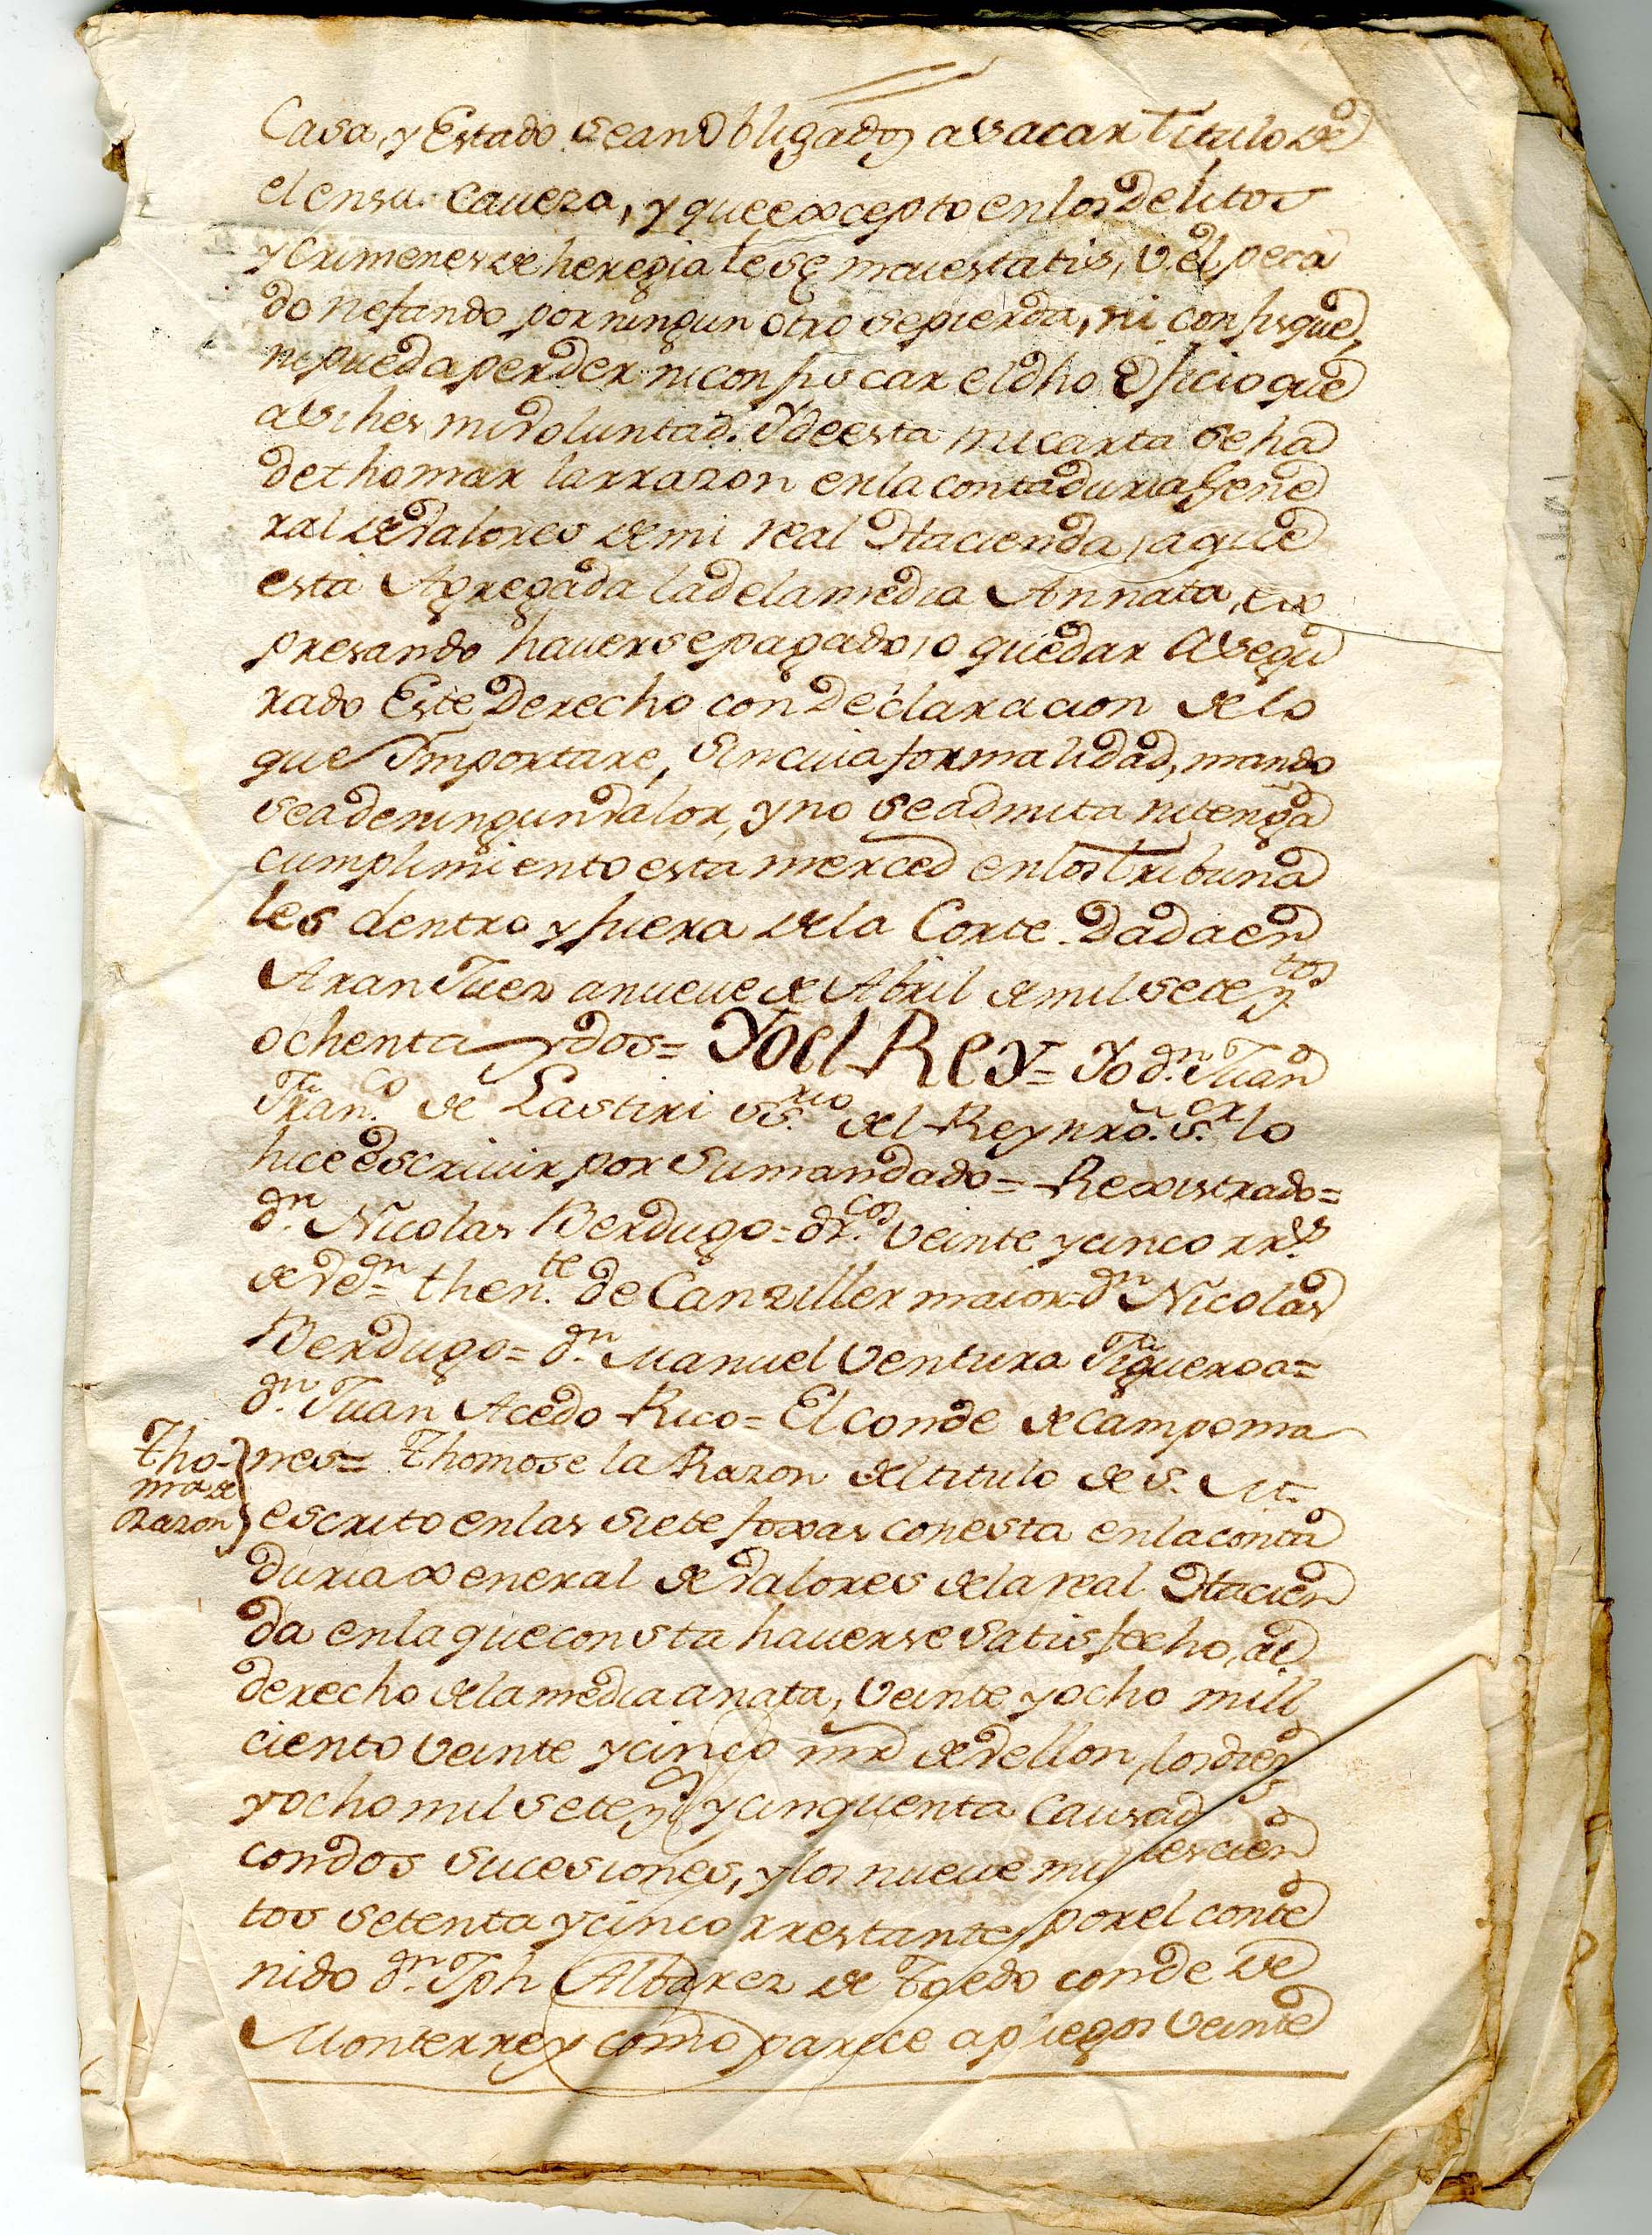 Casa, y Estado sean obligados a sacar titulo de
el en su caveza, y que excepto en los delitos
y Crimenes de heregia lese maiestatis, v el peca
do nefando por ningun otro se pierda, ni confisque,
ni pueda perder ni confiscar el dho oficio que
asi hes mi voluntad. Y de esta mi carta se ha
de thomar la rrazon en la contaduria Gene
ral de valores de mi real Hacienda, a que
esta Agregada la de la media Annata, ex
presando haverse pagado, o quedar Asegu
rado Este Derecho con Declaracion de lo
que Importare, sin cuia formalidad, mando
sea de ningun valor, y no se admita ni tenga
cumplimiento esta merced en los tribuna
les dentro y fuera de la Corte. Dada en
Aranjuez a nueve de Abril de mil setez.tos
ochenta y dos = Yo el Rey = Yo dn. Juan
Fran.co de Lastiri ss.rio del Rey nro. s.or lo
hice escrivir por su mandado = Rexistrado =
dn. Nicolas Berdugo = dr.cos veinte y cinco rr.s
de ve.on = then.te de Canziller maior = dn Nicolas
Berdugo = dn. Manuel Ventura Figueroa =
dn. Juan Acedo Rico = El conde de campoma
Tho-
ma de
razon
nes = Thomose la Razon del titulo de S. M.
escrito en las siete foxas con esta en la conta
duria xeneral de valores de la real Hacien
da en la que consta haverse satisfecho, al
derecho de la media anata, veinte y ocho mill
ciento veinte y cinco mrd de vellon, los diez
y ocho mil setez.s y cinquenta Causad
con dos sucesiones, y los nueve mil tescien
tos setenta y cinco rrestantes por el conte
nido dn. Jph Albarez de Toledo conde de
Monterrey como parece a pliegos veinte